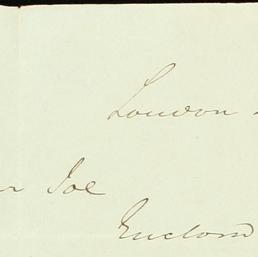 London
r Joe
Enclosed